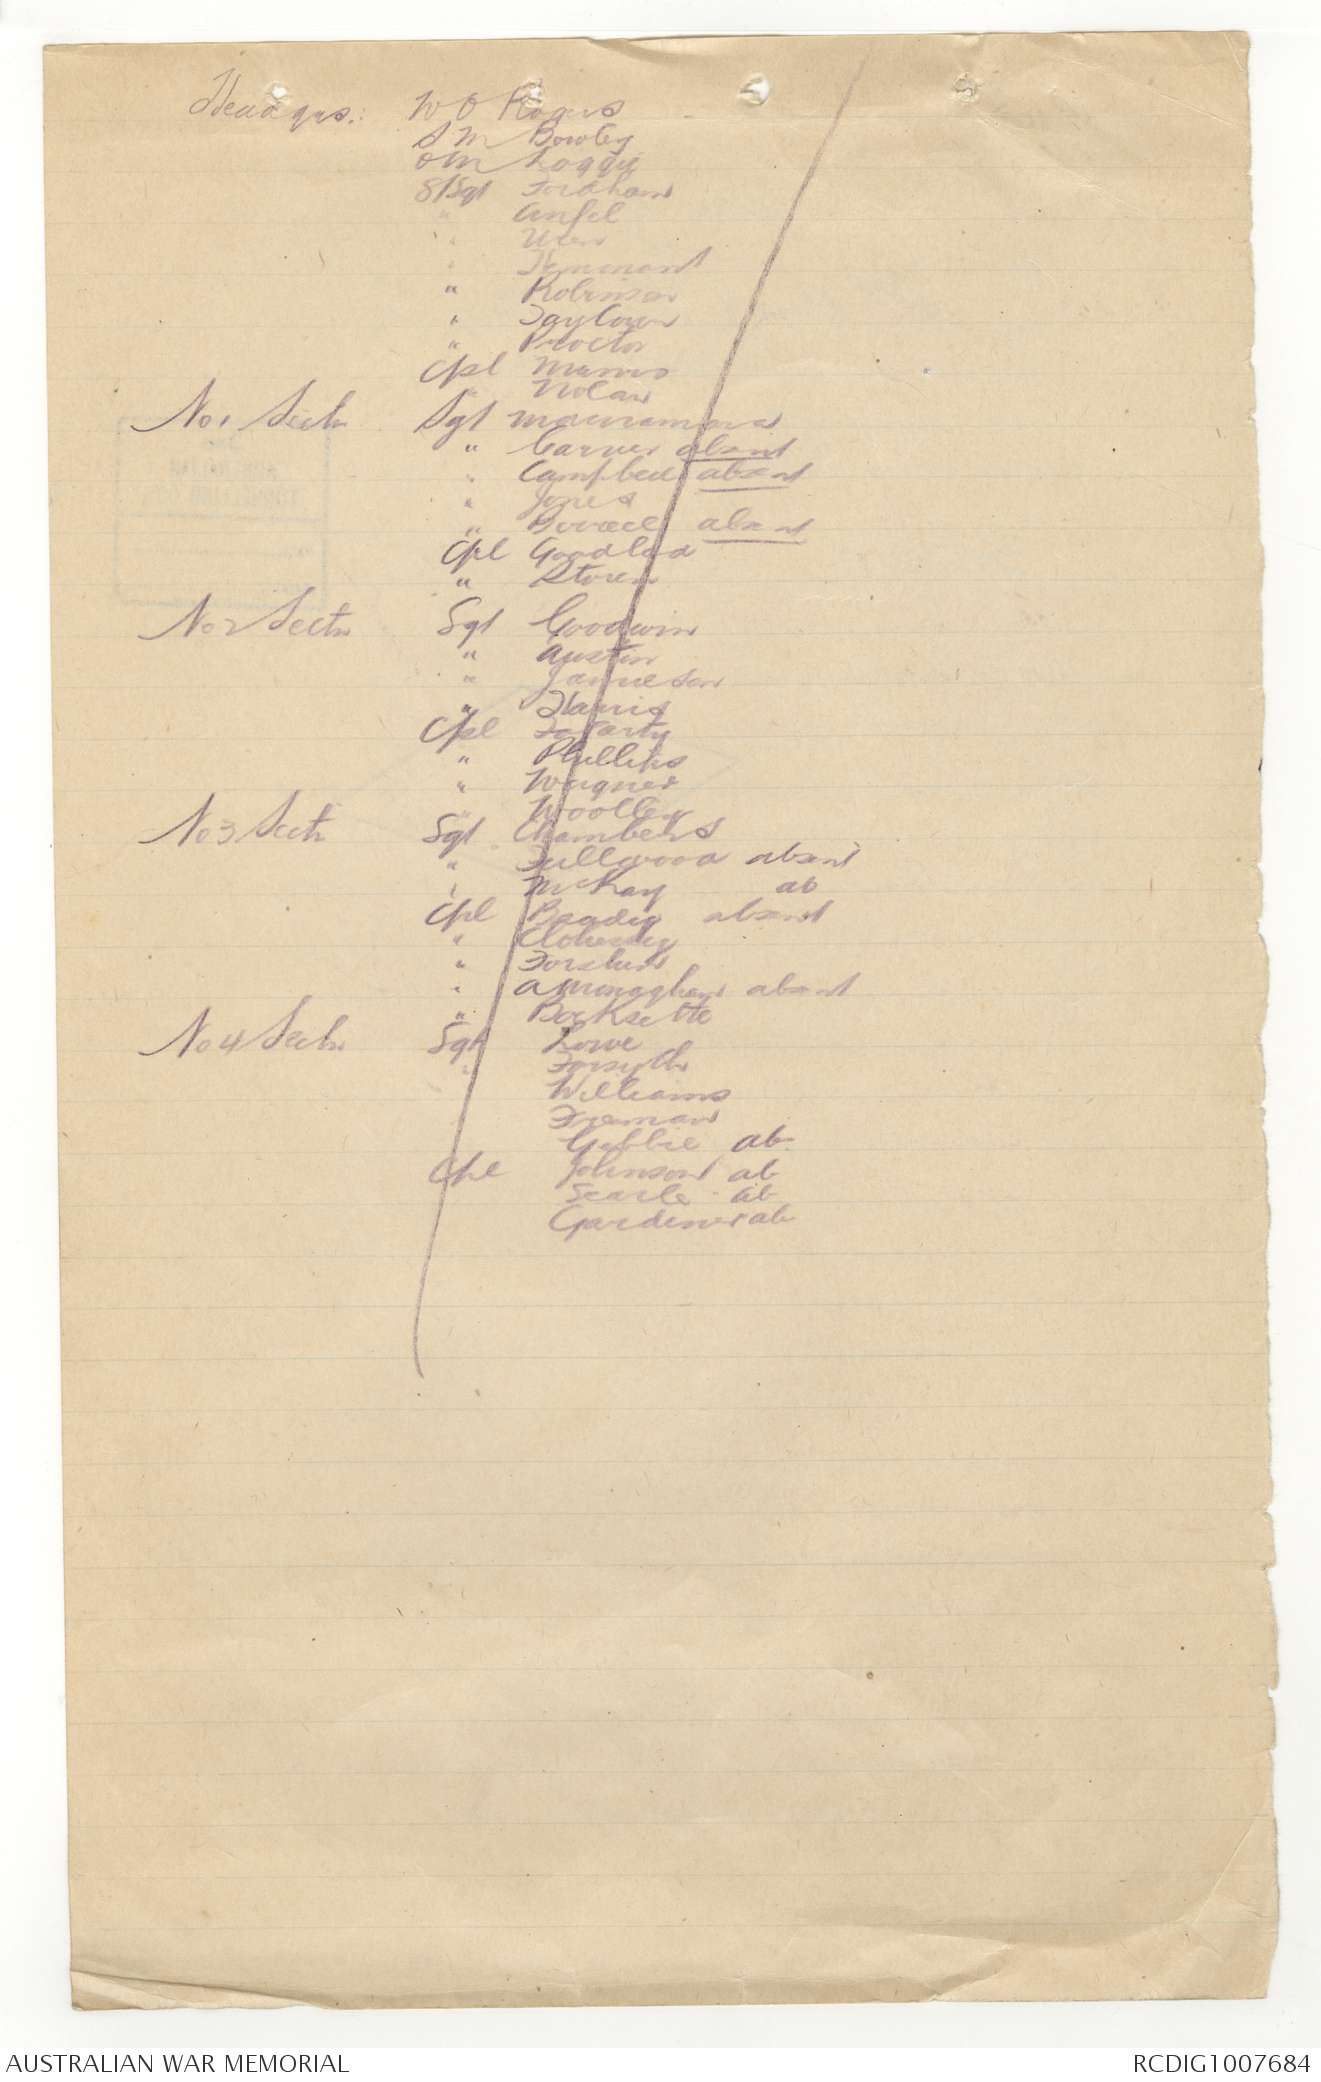 Headqrs: W O Rogers
S M Bowley
Q M Loggie
S/Sgt Fordham
" Anfel
" Uren
" Tennant
" Robinson
" Taylour
" Proctor
Cpl Munro
" Nolan
No 1 Sectn Sgt
" Carver absent
" Campbell absent
" Jones
" Birrell absent
Cpl Goodlad
" Storen
No 2 Sectn Sgt Goodwin
" Austin
" Jamieson
" Harris
Cpl Fogarty
" Phillips
" Wagner
" Woolley
No 3 Sectn Sgt Chambers
" Fullwood absent
" McKay ab
Cpl Bagdig absent
" Clohessy
" Forshaw
" absent
" Bocksette
No 4 Sectn Sgt Lowe
" Forsyth
Williams
Freeman
Gebbie ab
Cpl Johnson ab
Searle ab
Gardiner ab
AUSTRALIAN WAR MEMORIAL RCDIG1007684